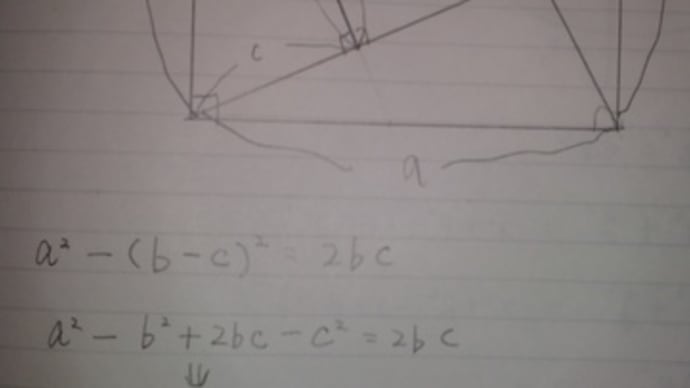 c
a
a² - (b - c)² = 2bc
a² - b² + 2bc - c² = 2bc
⇓